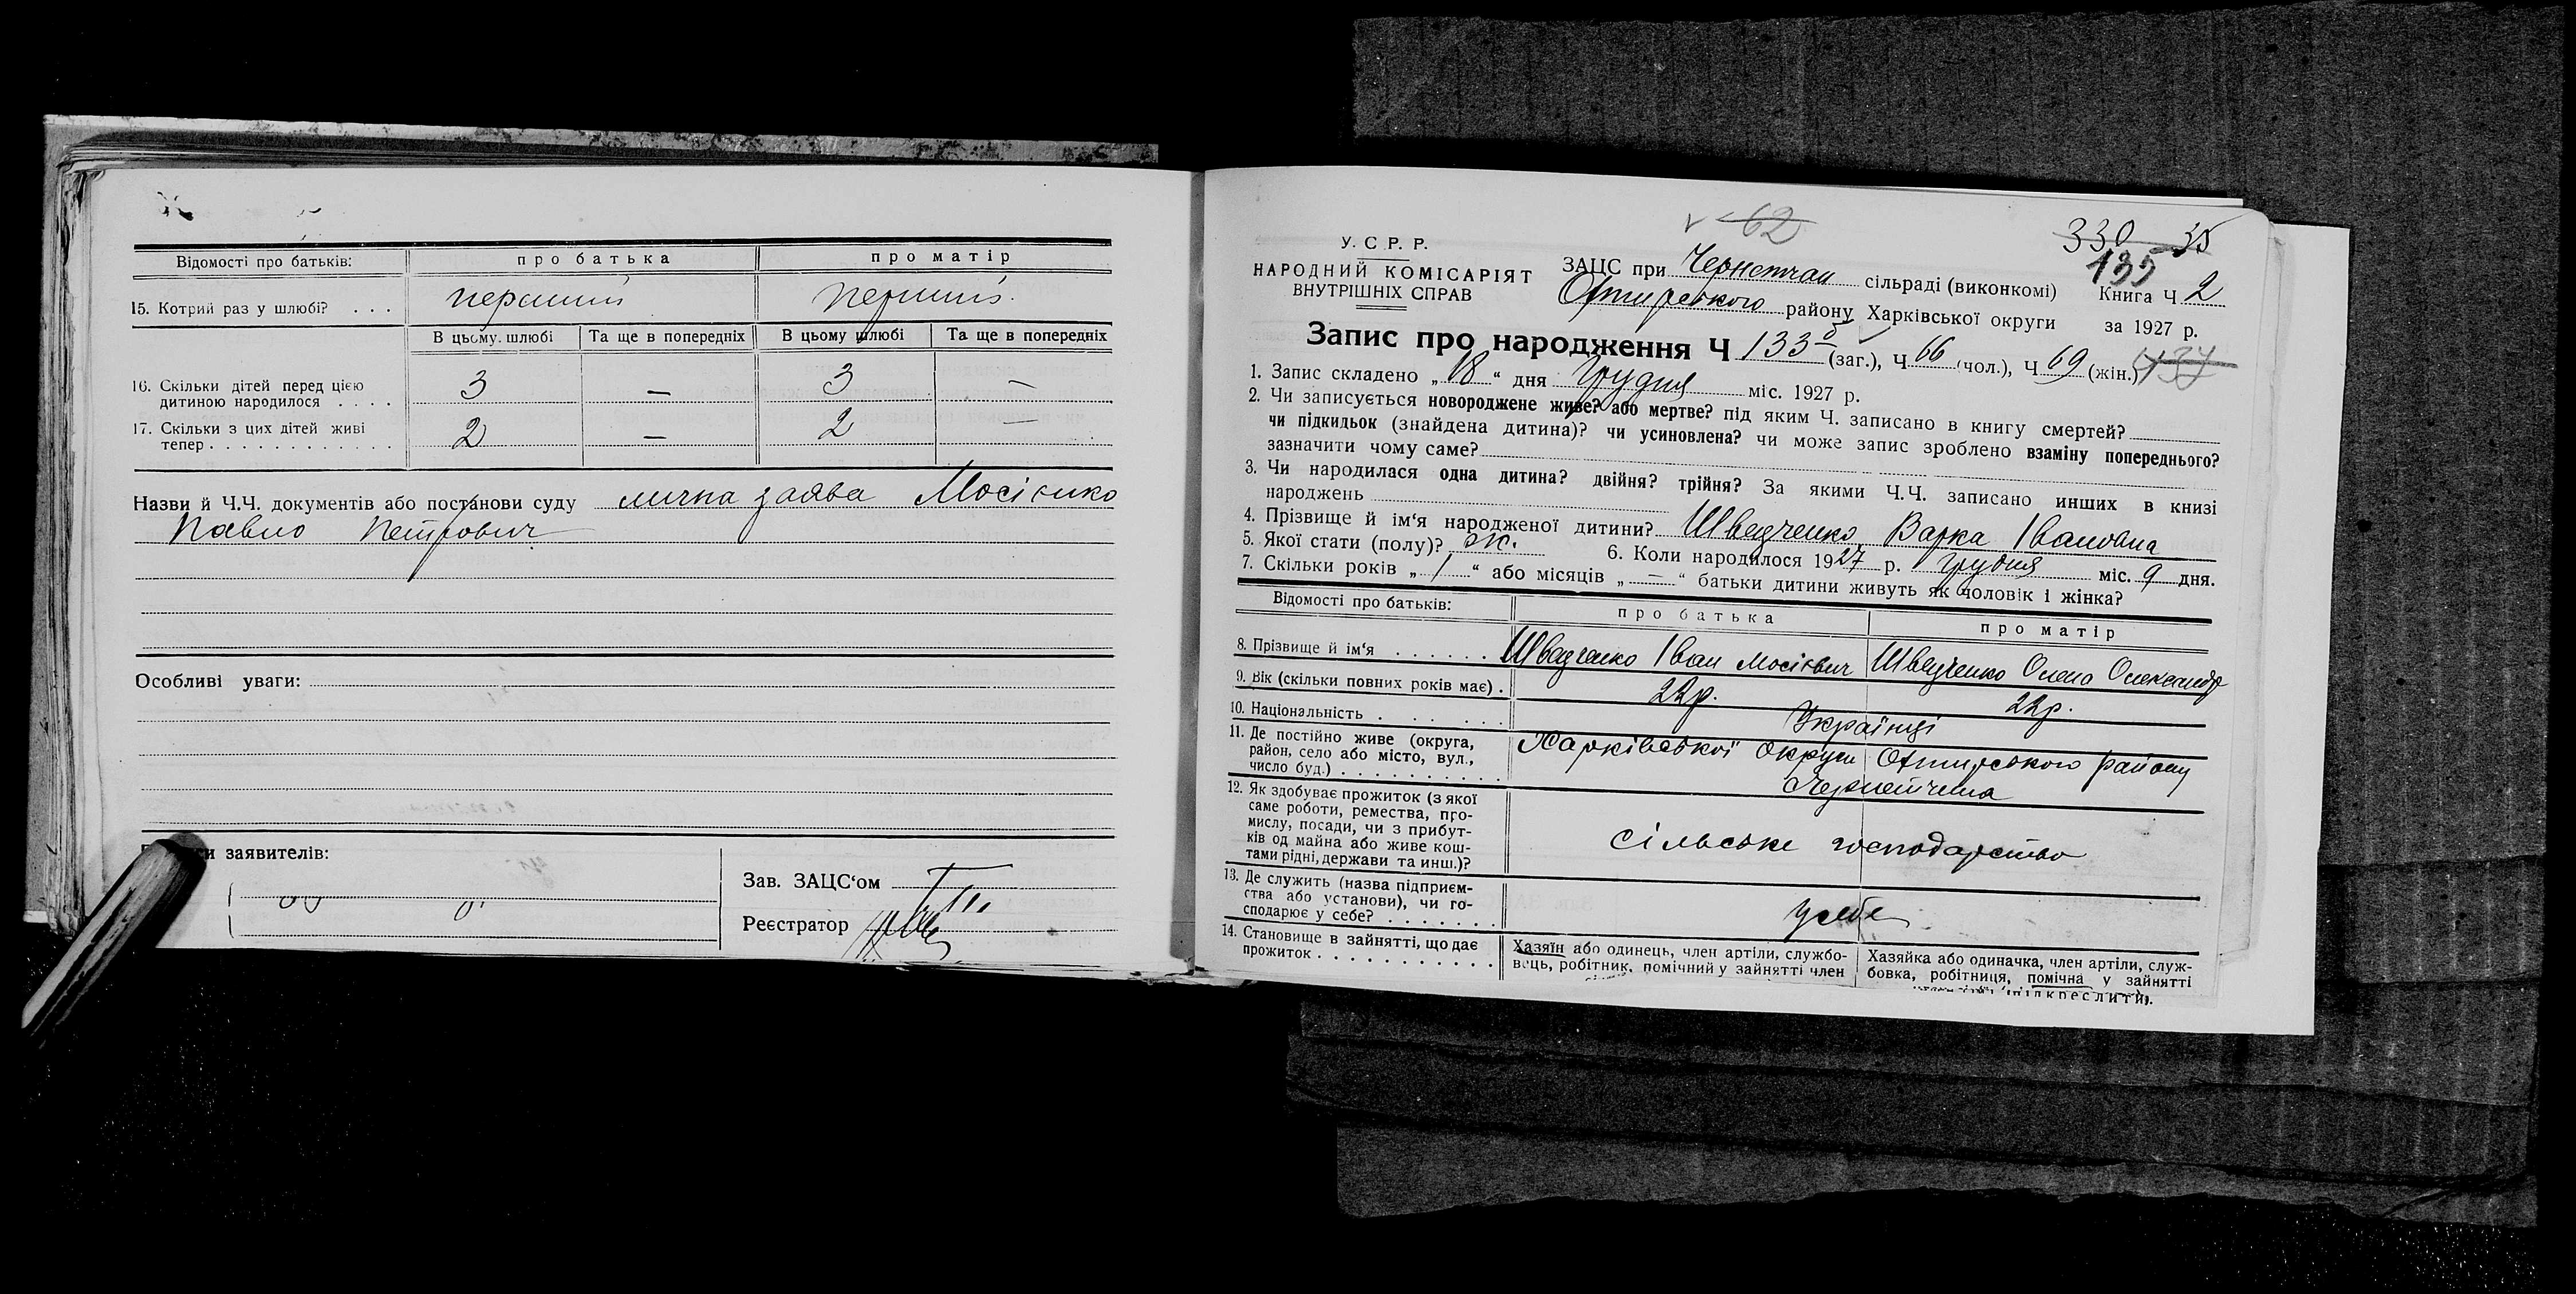 Відомості про батьків: про батька про матір
15. Котрий раз у шлюбі? . . . перший перший.
В цьому шлюбі Та ще в попередніх В цьому шлюбі Та ще в попередніх
16. Скільки дітей перед цією
дитиною народилося . . . . 3 — 3 —
17. Скільки з цих дітей живі
тепер . . . . . . . . . . . . 2 — 2 —
Назви й Ч.Ч. документів або постанови суду лична заява Мосієнко
Павло Петрович
Особливі уваги:
заявителів:
Зав. ЗАЦС‘ом
Реєстратор
62
330 35
135
У. С. Р. Р.
НАРОДНИЙ КОМІСАРІЯТ
ВНУТРІШНІХ СПРАВ
ЗАЦС при Чернеччан сільраді (виконкомі) Книга Ч 2
Охтирського району Харківської округи за 1927 р.
Запис про народження Ч 133 б (заг.), Ч 66 (чол.), Ч 69 (жін.) 137
1. Запис складено „18“ дня Грудня міс. 1927 р.
2. Чи записується новороджене живе? або мертве? під яким Ч. записано в книгу смертей?
чи підкидьок (знайдена дитина)? чи усиновлена? чи може запис зроблено взаміну попереднього?
зазначити чому саме?
3. Чи народилася одна дитина? двійня? трійня? За якими Ч.Ч. записано инших в книзі
народжень
4. Прізвище й ім‘я народженої дитини? Шведченко Варка Івановна
5. Якої стати (полу)? ж. 6. Коли народилося 1927 р. Грудня міс. 9 дня.
7. Скільки років „1“ або місяців „—“ батьки дитини живуть як чоловік і жінка?
Відомості про батьків: про батька про матір
8. Прізвище й ім‘я . . . . . . Шведченко Іван Мосієвич Шведченко Олена Олександр
9. Вік (скільки повних років має) . 22р. 22р.
10. Національність . . . . . . Українці
11. Де постійно живе (округа,
район, село або місто, вул.,
число буд.) . . . . . . . . . . . Харківської Округи Охтирського району
Чернетчина
12. Як здобуває прожиток (з якої
саме роботи, ремества, про-
мислу, посади, чи з прибут-
ків од майна або живе кош-
тами рідні, держави та инш.)? сільське господарство
13. Де служить (назва підприєм-
ства або установи), чи го-
сподарює у себе? . . . . . . . у себе
14. Становище в зайнятті, що дає
прожиток . . . . . . . . . . .
Хазяїн або одинець, член артіли, службо-
вець, робітник, помічний у зайнятті член
Хазяйка або одиначка, член артіли, служ-
бовка, робітниця, помічна у зайнятті
(підкреслити).